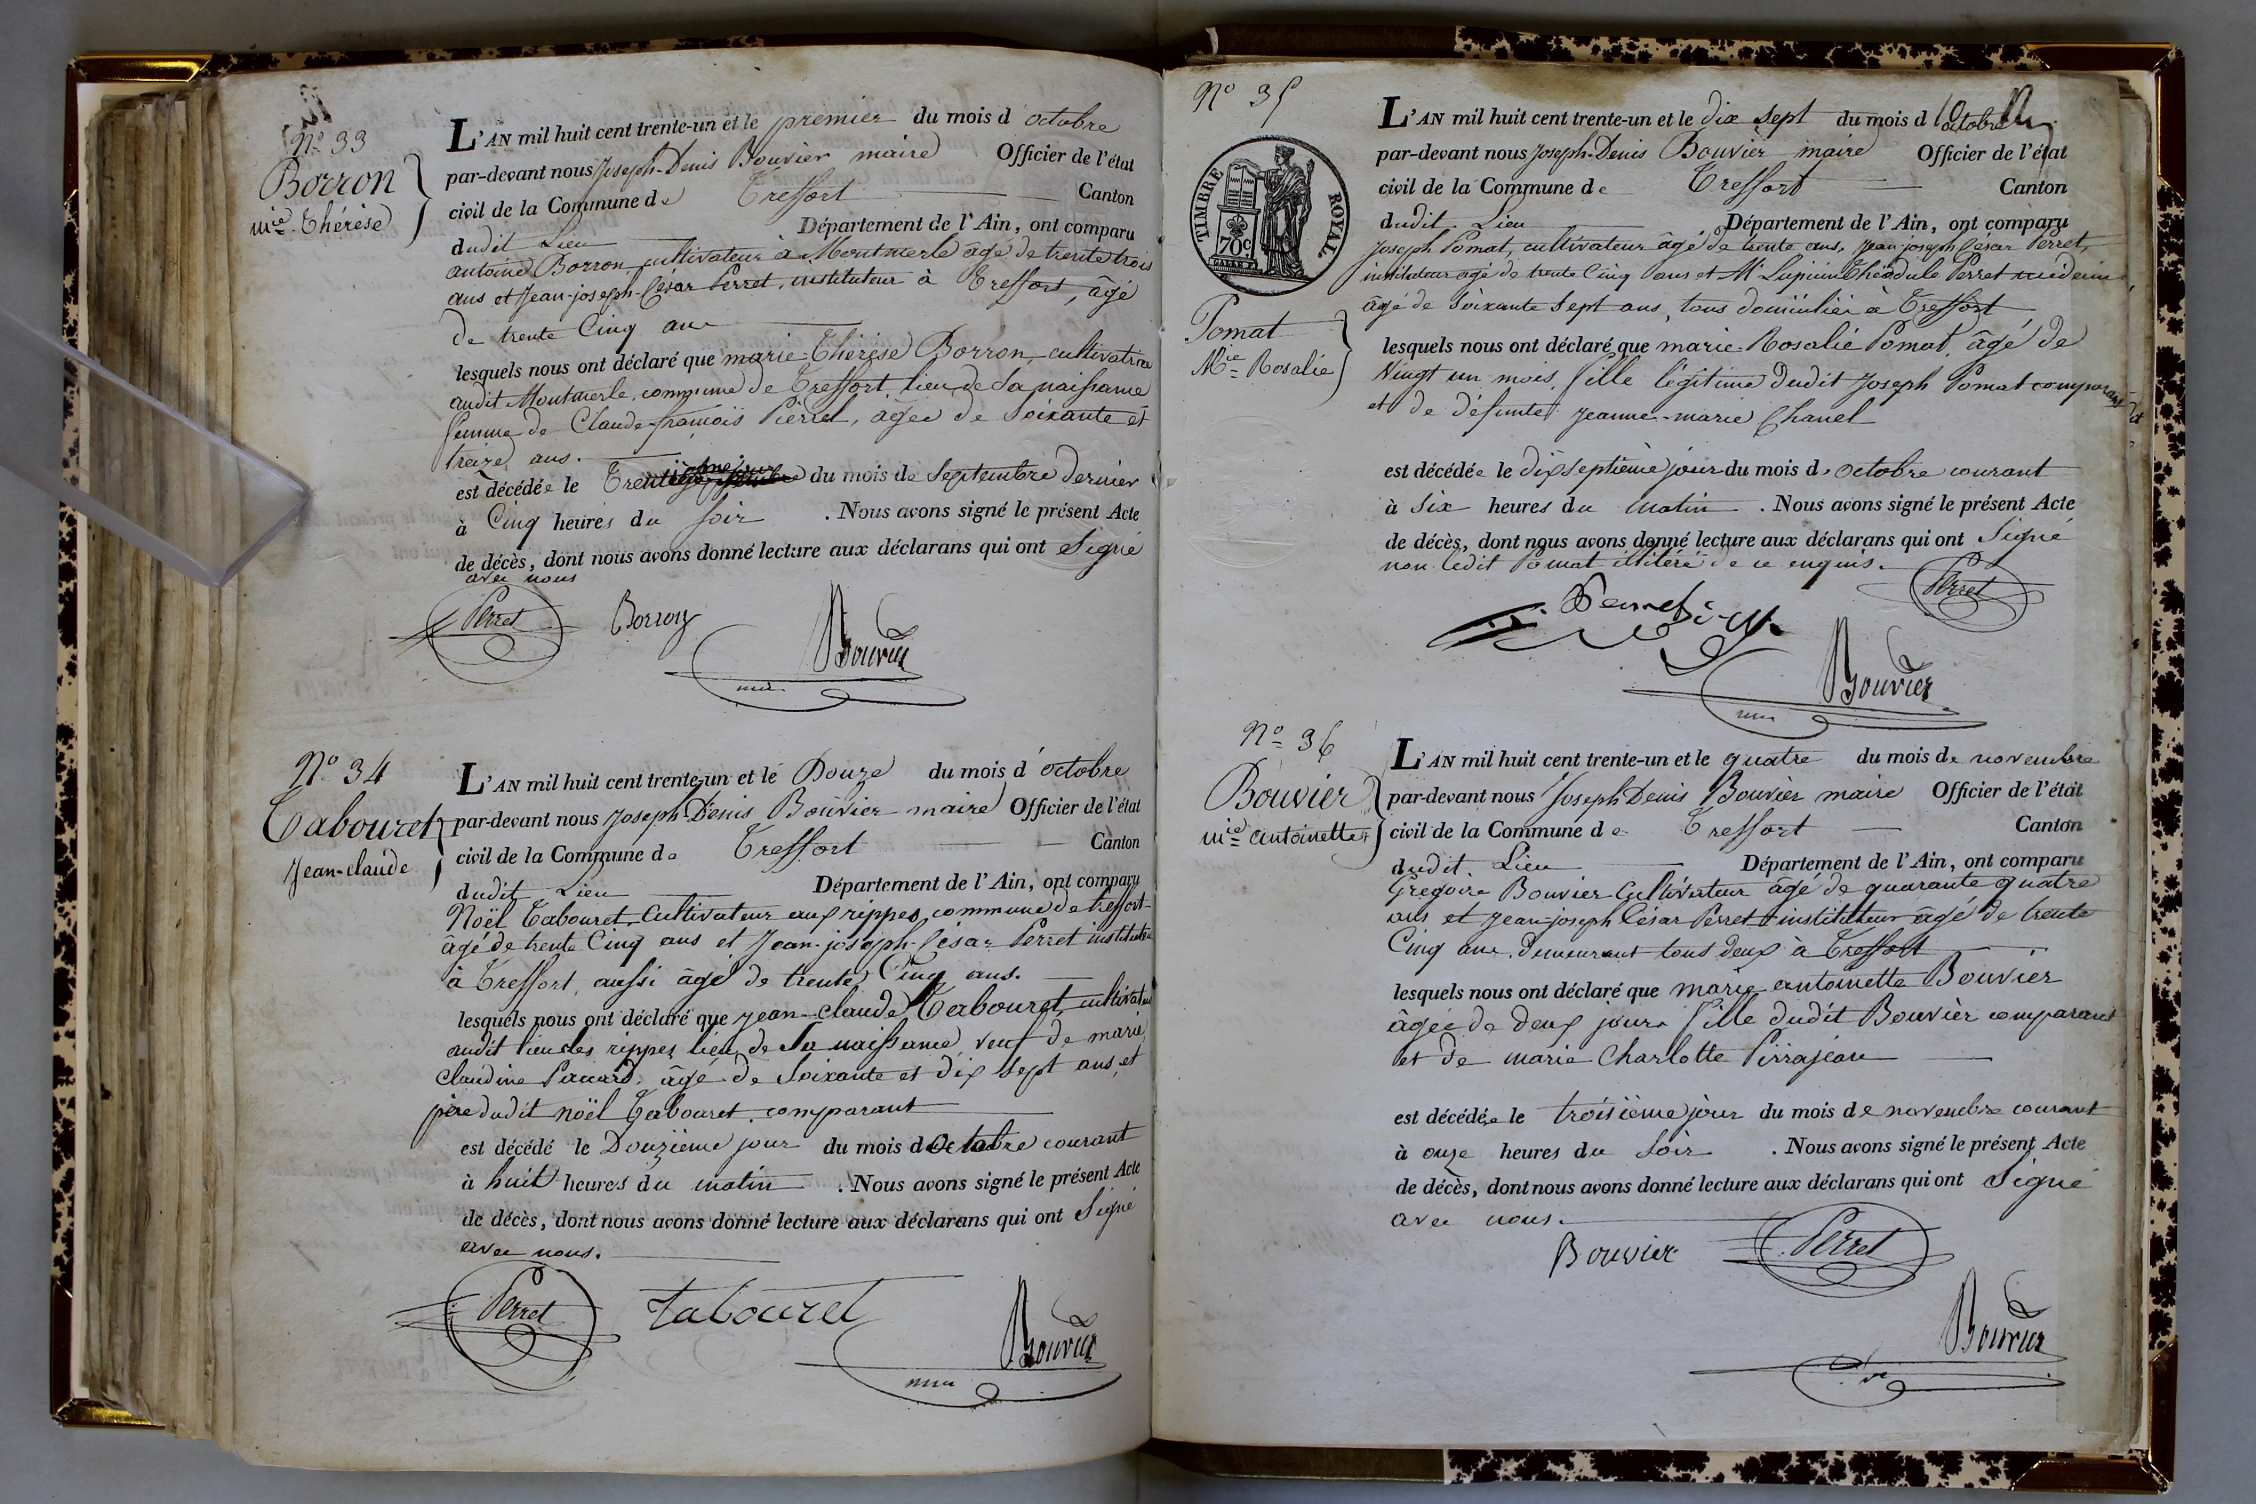 N.º 33
Borron
m.ie Thérèse
L'AN mil huit cent trente-un et le premier du mois d'octobre
par-devant nous Joseph-Denis Bouvier maire Officier de l'état
civil de la Commune de Treffort Canton
dudit Lieu Département de l'Ain, ont comparu
antoine Borron cultivateur à Montmerle âgé de trente trois
ans et Jean-joseph-César Perret, instituteur à Treffort, âgé
de trente Cinq ans
lesquels nous ont déclaré que marie-Thérèse Borron, cultivatrice
audit Montmerle, commune de Treffort, lieu de Sa naissance
femme de Claude-françois Pierrel, âgée de Soixante et
treize ans.
est décédée le du mois de Septembre dernier
à Cinq heures du Soir . Nous avons signé le présent Acte
de décès, dont nous avons donné lecture aux déclarans qui ont Signé
avec nous
Perret Borron Bouvier
N.º 34
Tabouret
Jean-claude
L'AN mil huit cent trente-un et le Douze du mois d'octobre
par-devant nous Joseph-Denis Bouvier maire Officier de l'état
civil de la Commune de Treffort Canton
dudit Lieu Département de l'Ain, ont comparu
Noël Tabouret, Cultivateur aux rippes, commune de treffort
âgé de trente Cinq ans et Jean-joseph-César Perret instituteur
à Treffort, aussi âgé de trente Cinq ans.
lesquels nous ont déclaré que Jean-claude Tabouret, cultivateur
audit lieu des rippes lieu de Sa naissance, veuf de marie
claudine Paccard, âgé de Soixante et dix Sept ans, et
père dudit noël Tabouret, comparant
est décédé le Douzième jour du mois d'Octobre courant
à huit heures du matin . Nous avons signé le présent Acte
de décès, dont nous avons donné lecture aux déclarans qui ont Signé
avec nous.
Perret Tabouret Bouvier
Nº 35
TIMBRE ROYAL
70c
Pomat
M.ie Rosalie
L'AN mil huit cent trente-un et le dix sept du mois d'octobre
par-devant nous Joseph-Denis Bouvier maire Officier de l'état
civil de la Commune de Treffort Canton
dudit Lieu Département de l'Ain, ont comparu
Joseph Pomat, cultivateur âgé de trente ans, Jean joseph César Perret,
instituteur âgé de trente Cinq ans et Mr Lupicin Théodule Perret médecin
âgé de Soixante Sept ans, tous domiciliés à Treffort
lesquels nous ont déclaré que marie-Rosalie Pomat, âgé de
Vingt un mois, fille légitime dudit Joseph Pomat comparant
et de défunte jeanne-marie Chanel
est décédée le dix septième jour du mois d'octobre courant
à Six heures du matin . Nous avons signé le présent Acte
de décès, dont nous avons donné lecture aux déclarans qui ont Signé
non ledit Pomat de ce enquis.
Perret
Bouvier
N.º 36
Bouvier
m.ie antoinette
L'AN mil huit cent trente-un et le quatre du mois de novembre
par-devant nous Joseph Denis Bouvier maire Officier de l'état
civil de la Commune de Treffort Canton
dudit Lieu Département de l'Ain, ont comparu
Grégoire Bouvier Cultivateur âgé de quarante quatre
ans et jean-joseph César Perret instituteur âgé de trente
Cinq ans, demeurant tous deux à Treffort
lesquels nous ont déclaré que marie antoinette Bouvier
âgée de deux jours fille dudit Bouvier comparant
et de marie Charlotte Pirrajean
est décédée le troisième jour du mois de novembre courant
à onze heures du Soir . Nous avons signé le présent Acte
de décès, dont nous avons donné lecture aux déclarans qui ont Signé
avec nous.
Bouvier Perret
Bouvier